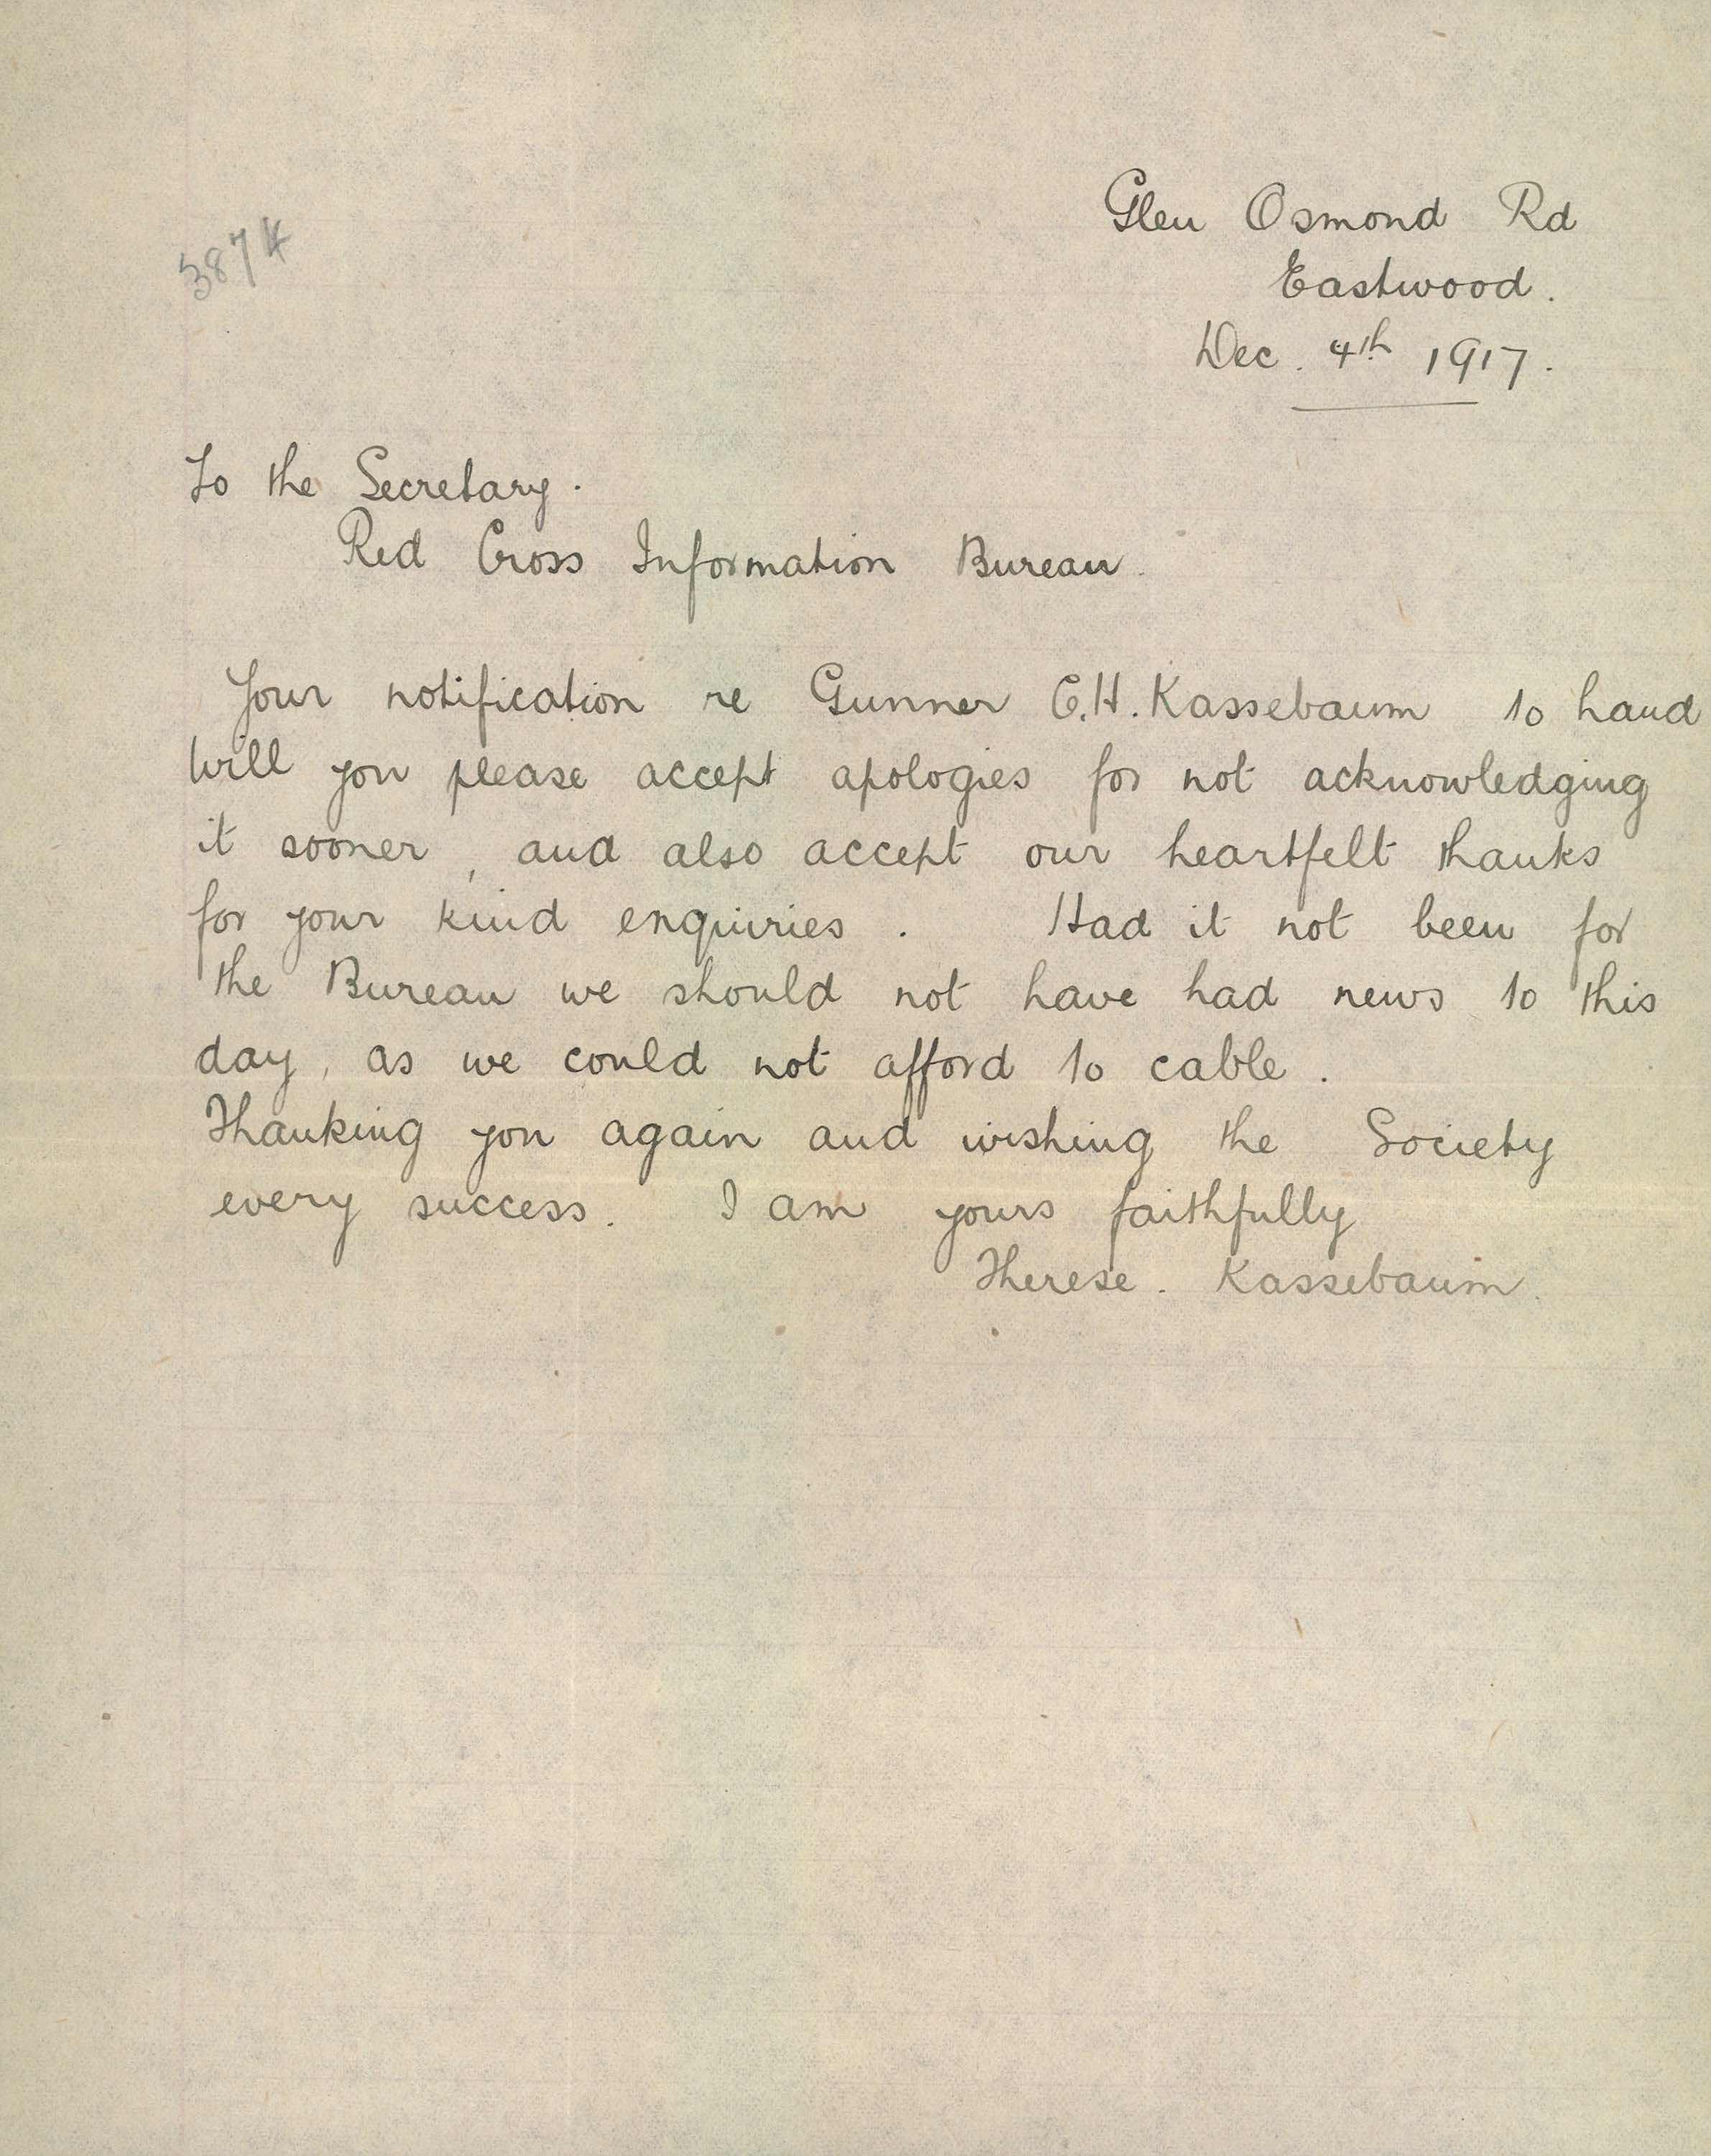 Glen Osmond Rd
3874
Eastwood.
Dec. 4th 1917.
To the Secretary.
Red Cross Information Bureau.
Your notification re Gunner C.H. Kassebaum to hand
Will you please accept apologies for not acknowledging
it sooner, and also accept our heartfelt thanks
for your kind enquiries. Had it not been for
the Bureau we should not have had news to this
day, as we could not afford to cable.
Thanking you again and wishing the Society
every success. I am yours faithfully
Therese. Kassebaum.